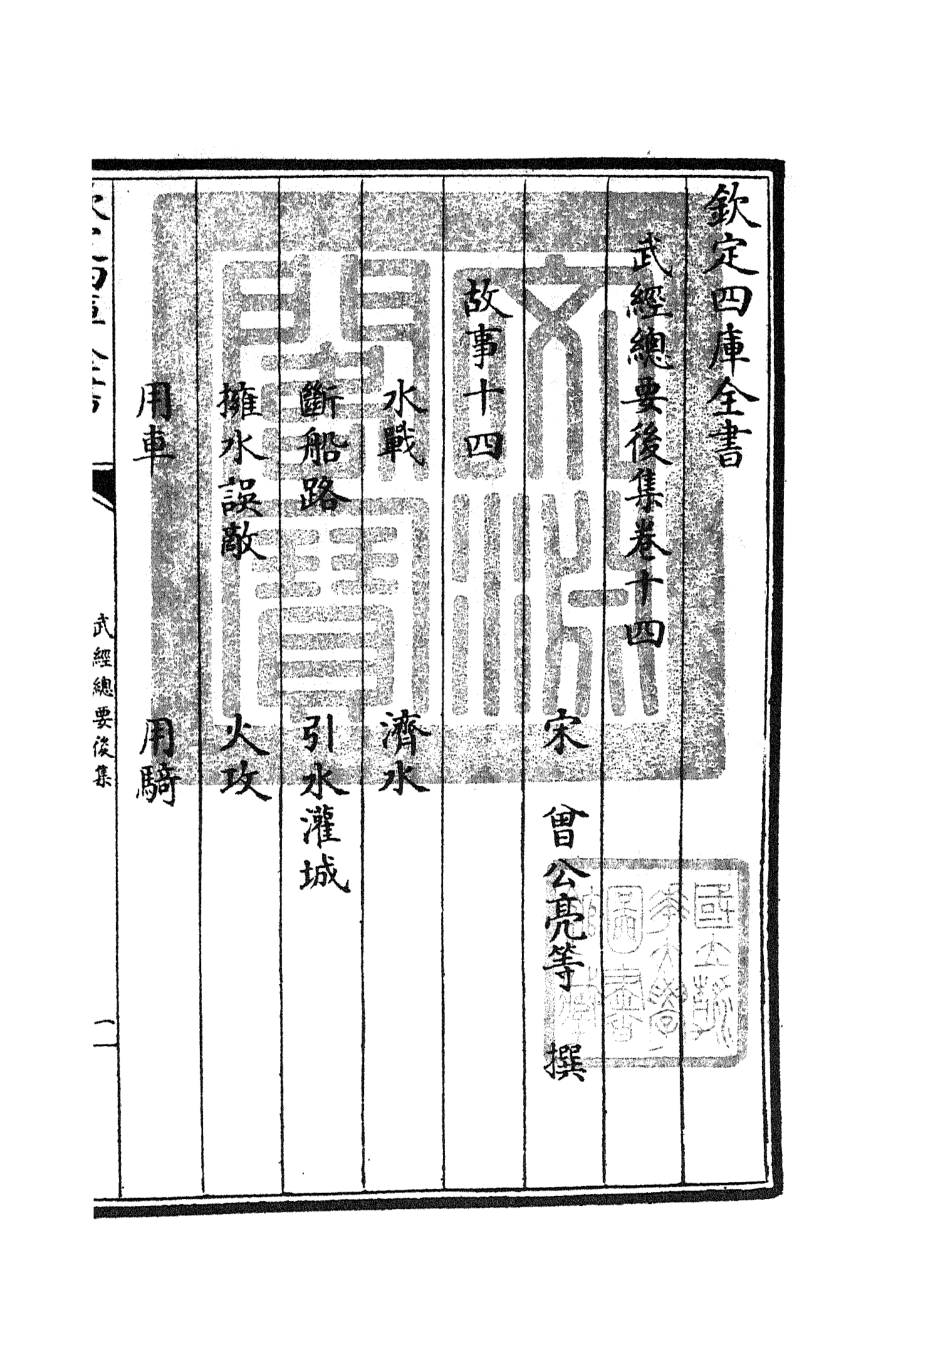 欽定四庫全書
武經總要後集卷十四
宋 曾公亮等 撰
故事十四
水戰 濟水
斷船路 引水灌城
擁水誤敵 火攻
用車 用騎
武經總要後集
一
文淵閣寶